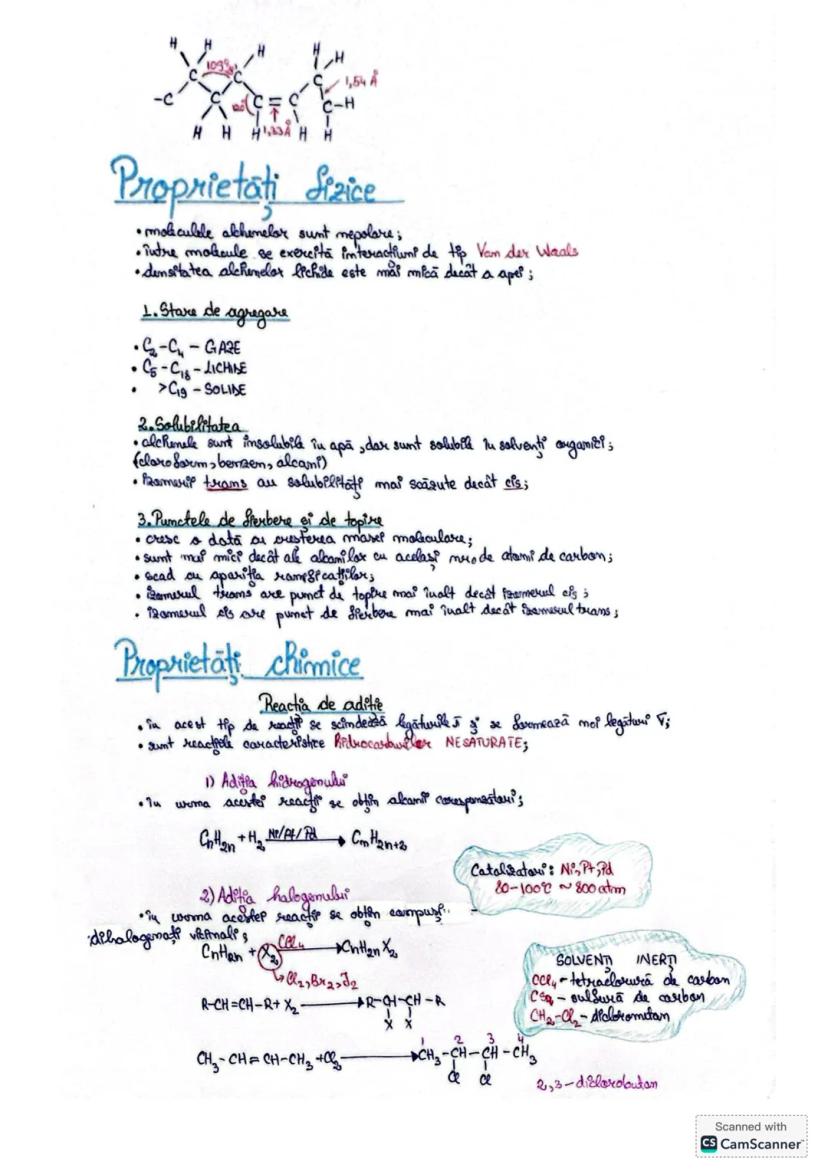 H H H H H
109° C C C 1,54 Å
-C C C = C C-H
H H H 1,33Å H H
Proprietăți fizice
• moleculele alchenelor sunt nepolare;
• între molecule se exercită interacțiuni de tip Van der Waals
• densitatea alchenelor lichide este mai mică decât a apei;
1. Stare de agregare
• C₂-C₄ - GAZE
• C₅-C₁₈ - LICHIDE
• >C₁₉ - SOLIDE
2. Solubilitatea
• alchenele sunt insolubile în apă, dar sunt solubile în solvenți organici;
(cloroform, benzen, alcani)
• izomerii trans au solubilități mai scăzute decât cis;
3. Punctele de fierbere și de topire
• cresc o dată cu creșterea masei moleculare;
• sunt mai mici decât ale alcanilor cu același nr. de atomi de carbon;
• scad cu apariția ramificațiilor;
• izomerul trans are punct de topire mai înalt decât izomerul cis;
• izomerul cis are punct de fierbere mai înalt decât izomerul trans;
Proprietăți chimice
Reacția de adiție
• în acest tip de reacții se scindează legăturile π și se formează noi legături σ;
• sunt reacțiile caracteristice hidrocarburilor NESATURATE;
1) Adiția hidrogenului
• În urma acestei reacții se obțin alcanii corespunzători;
CnH2n + H₂ Ni/Pt/Pd → CnH2n+2
Catalizatori: Ni, Pt, Pd
80-100°C ~ 800 atm
2) Adiția halogenului
• în urma acestei reacții se obțin compuși
dihalogenați vicinali;
CnH2n + X₂ CCl₄ → CnH2n X₂
→ Cl₂, Br₂, I₂
SOLVENȚI INERȚI
CCl₄ - tetraclorură de carbon
CS₂ - sulfură de carbon
CH₂-Cl₂ - diclormetan
R-CH=CH-R + X₂ → R-CH-CH-R
X X
1 2 3 4
CH₃-CH=CH-CH₃ + Cl₂ → CH₃-CH-CH-CH₃
Cl Cl
2,3-diclorobutan
Scanned with
CS CamScanner